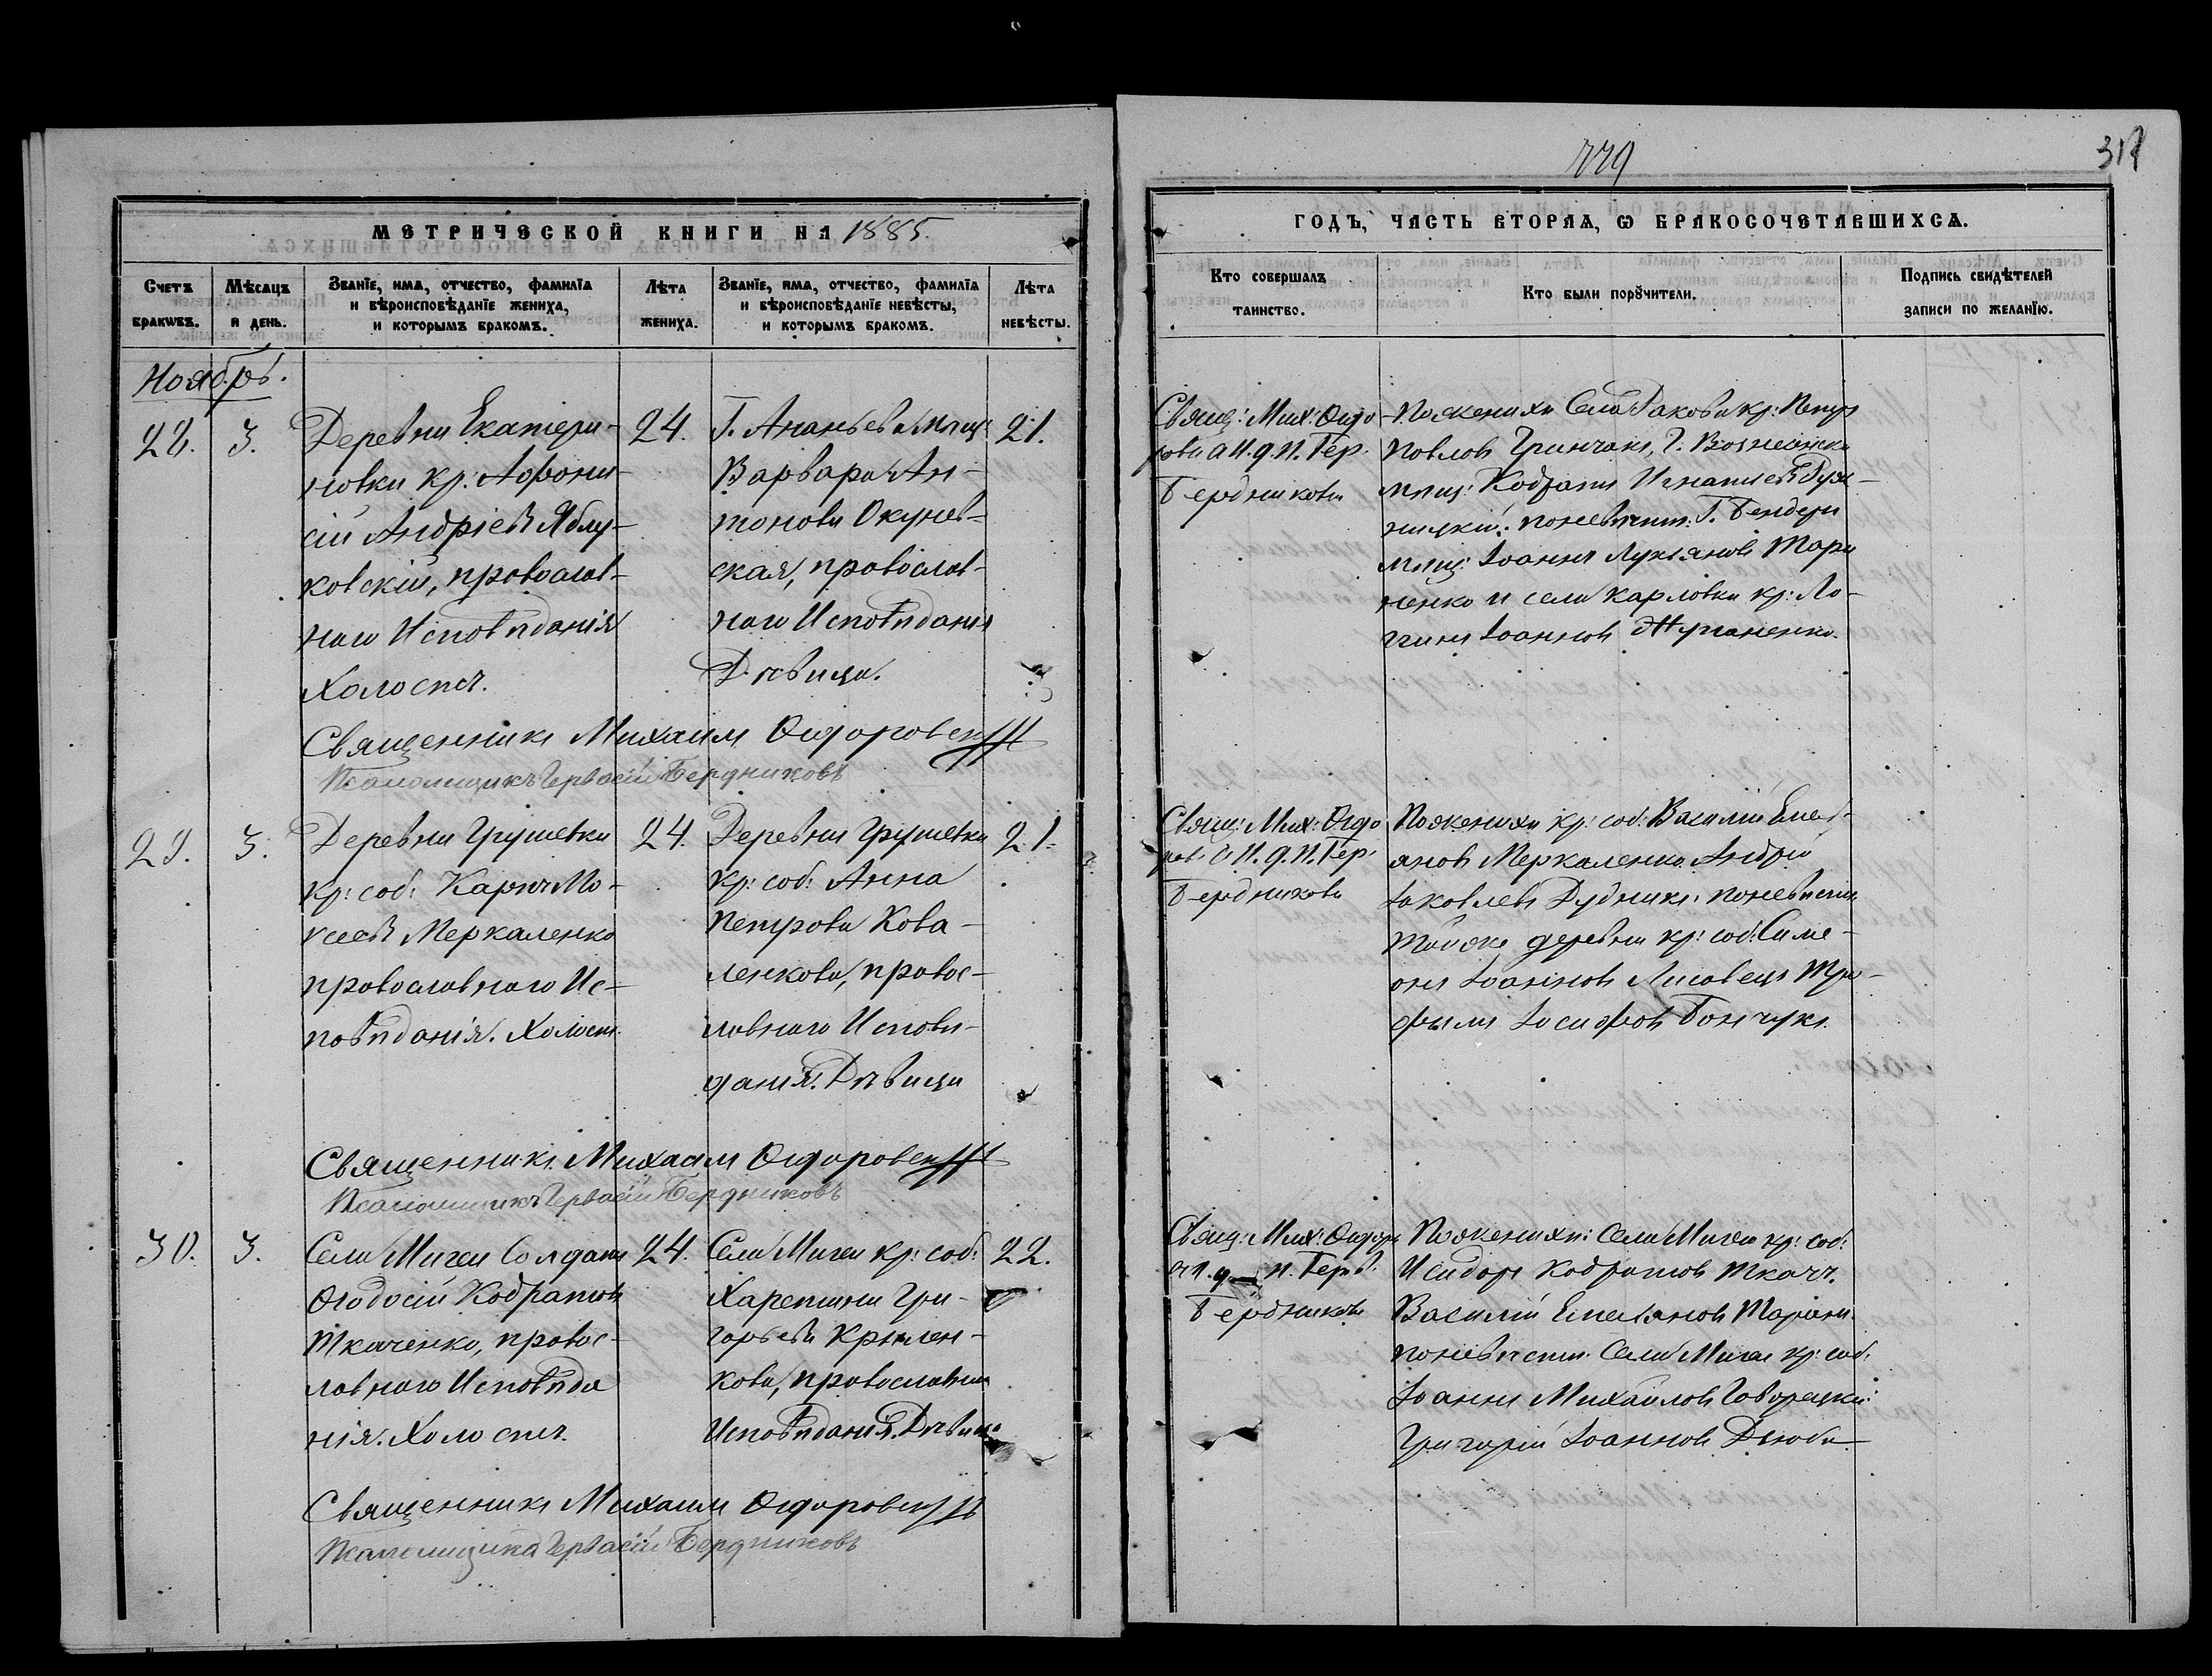 779
317
МЕТРИЧЕСКОЙ КНИГИ НА 1885.
ГОДЪ, ЧАСТЬ ВТОРАЯ, Ѡ БРАКОСОЧЕТАВШИХСѦ.
Счетъ браквъ.
Мѣсяцъ и день.
Званїе, имѧ, отчество, фамилїѧ
и вѣроисповѣданїе жениха,
и которымъ бракомъ.
Лѣта
жениха.
Званїе, имѧ, отчество, фамилїѧ
и вѣроисповѣданїе невѣсты,
и которымъ бракомъ.
Лѣта
невѣсты.
Кто совершалъ
таинство.
Кто были порꙋчители.
Подпись свидѣтелей
записи по желанїю.
Ноябрь.
28.
3.
Деревни Екатери-
новки кр. Афона-
сій Андріевъ Яблу-
ковскій, православ-
наго Исповѣданія
Холостъ.
24.
Г. Ананьева мѣщ:
Варвара Ан-
тонова Окунев-
ская, православ-
наго Исповѣданія
Дѣвица.
21.
Свящ: Мих: Ѳедо
ровъ а И. д. П. Гер.
Бердниковъ
По женихѣ Села Ракова кр: Петръ
Повловъ Гринчакъ, Г. Вознесенска
мѣщ: Кодратъ Игнатіевъ
ницкій: по невѣстѣ: Г. Бендеры
мѣщ: Іоаннъ Лукьяновъ Мари
ненко и села Карловки кр: Ло-
ггинъ Іоанновъ
Священникъ Михаилъ Ѳедоровскій
Псаломщикъ Гервасій Бердниковъ
29.
3.
Деревни Грушевки
кр: соб: Карпъ Мо-
исеевъ Меркаленко
православнаго Ис-
повѣданія. Холостъ.
24.
Деревни Грушевки
кр: соб: Анна
Петрова Кова-
ленкова, правос-
лавнаго Исповѣ-
данія. Дѣвица
21.
Свящ: Мих: Ѳедо
ровъ а И. д. П. Гер.
Бердниковъ
По женихѣ кр: соб: Василій Емель-
яновъ Меркаленко Андрей
Іаковлевъ Дудникъ: по невѣстѣ
той же деревни кр: соб: Симе-
онъ Іоанновъ Лисовецъ Тро-
фымъ Іосифовъ Бончукъ.
Священникъ Михаилъ Ѳедоровскій
Псаломщикъ Гервасій Бердниковъ
30.
3.
Села Мигеи Солдатъ
Ѳеодосій Кодратовъ
Ткаченко, правос-
лавнаго Исповѣда
нія. Холостъ.
24.
Села Мигеи кр: соб:
Харетина Гри-
горьева Крылен-
кова, православнаго
Исповѣданія. Дѣвица
22.
Свящ: Мих: Ѳедоро
а И. д. П. Герв.
Бердниковъ
По женихѣ: Села Мигеи кр: соб:
Исидоръ Кодратовъ Ткачъ.
Василій Емельяновъ
по невѣстѣ: Села Мигеи кр: соб:
Іоаннъ Михайловъ Говорецкій
Григорій Іоанновъ Дзюба
Священникъ Михаилъ Ѳедоровскій
Псаломщикъ Гервасій Бердниковъ